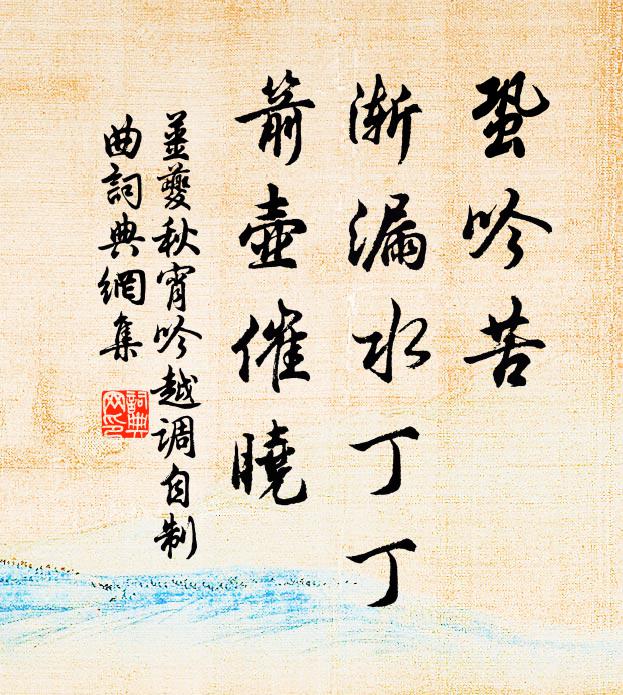 蛩吟苦
渐漏水丁丁
箭壶催晓
姜夔秋宵吟越调自制
曲詞典網集
詞典
网印